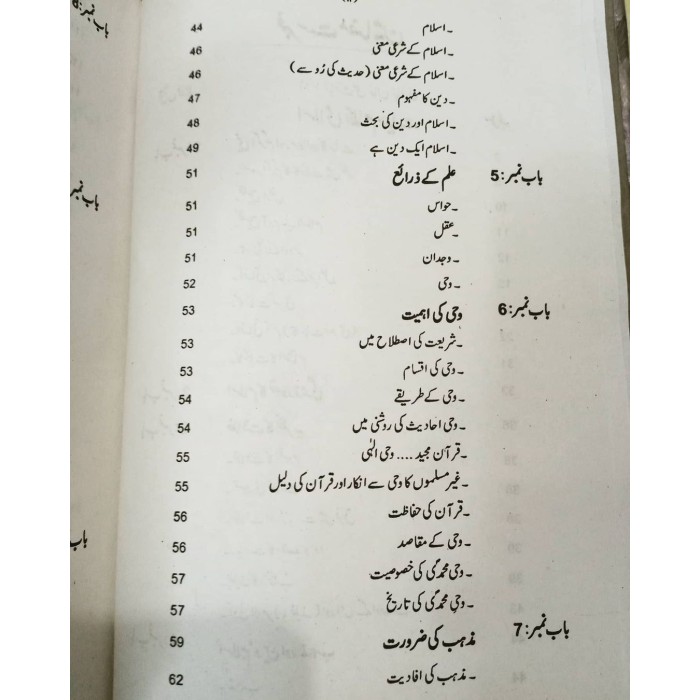 ۔ اسلام 44
۔ اسلام کے شرعی معنی 46
۔ اسلام کے شرعی معنی (حدیث کی رُو سے) 46
۔ دین کا مفہوم 47
۔ اسلام اور دین کی بحث 48
۔ اسلام ایک دین ہے 49
باب نمبر: 5 علم کے ذرائع 51
۔ حواس 51
۔ عقل 51
۔ وجدان 51
۔ وحی 52
باب نمبر: 6 وحی کی اہمیت 53
۔ شریعت کی اصطلاح میں 53
۔ وحی کی اقسام 53
۔ وحی کے طریقے 54
۔ وحی احادیث کی روشنی میں 54
۔ قرآن مجید .... وحی الٰہی 55
۔ غیر مسلموں کا وحی سے انکار اور قرآن کی دلیل 55
۔ قرآن کی حفاظت 56
۔ وحی کے مقاصد 56
۔ وحی محمدیؐ کی خصوصیت 57
۔ وحیِ محمدیؐ کی تاریخ 57
باب نمبر: 7 مذہب کی ضرورت 59
۔ مذہب کی افادیت 62
باب نمبر: 8
باب نمبر:
باب